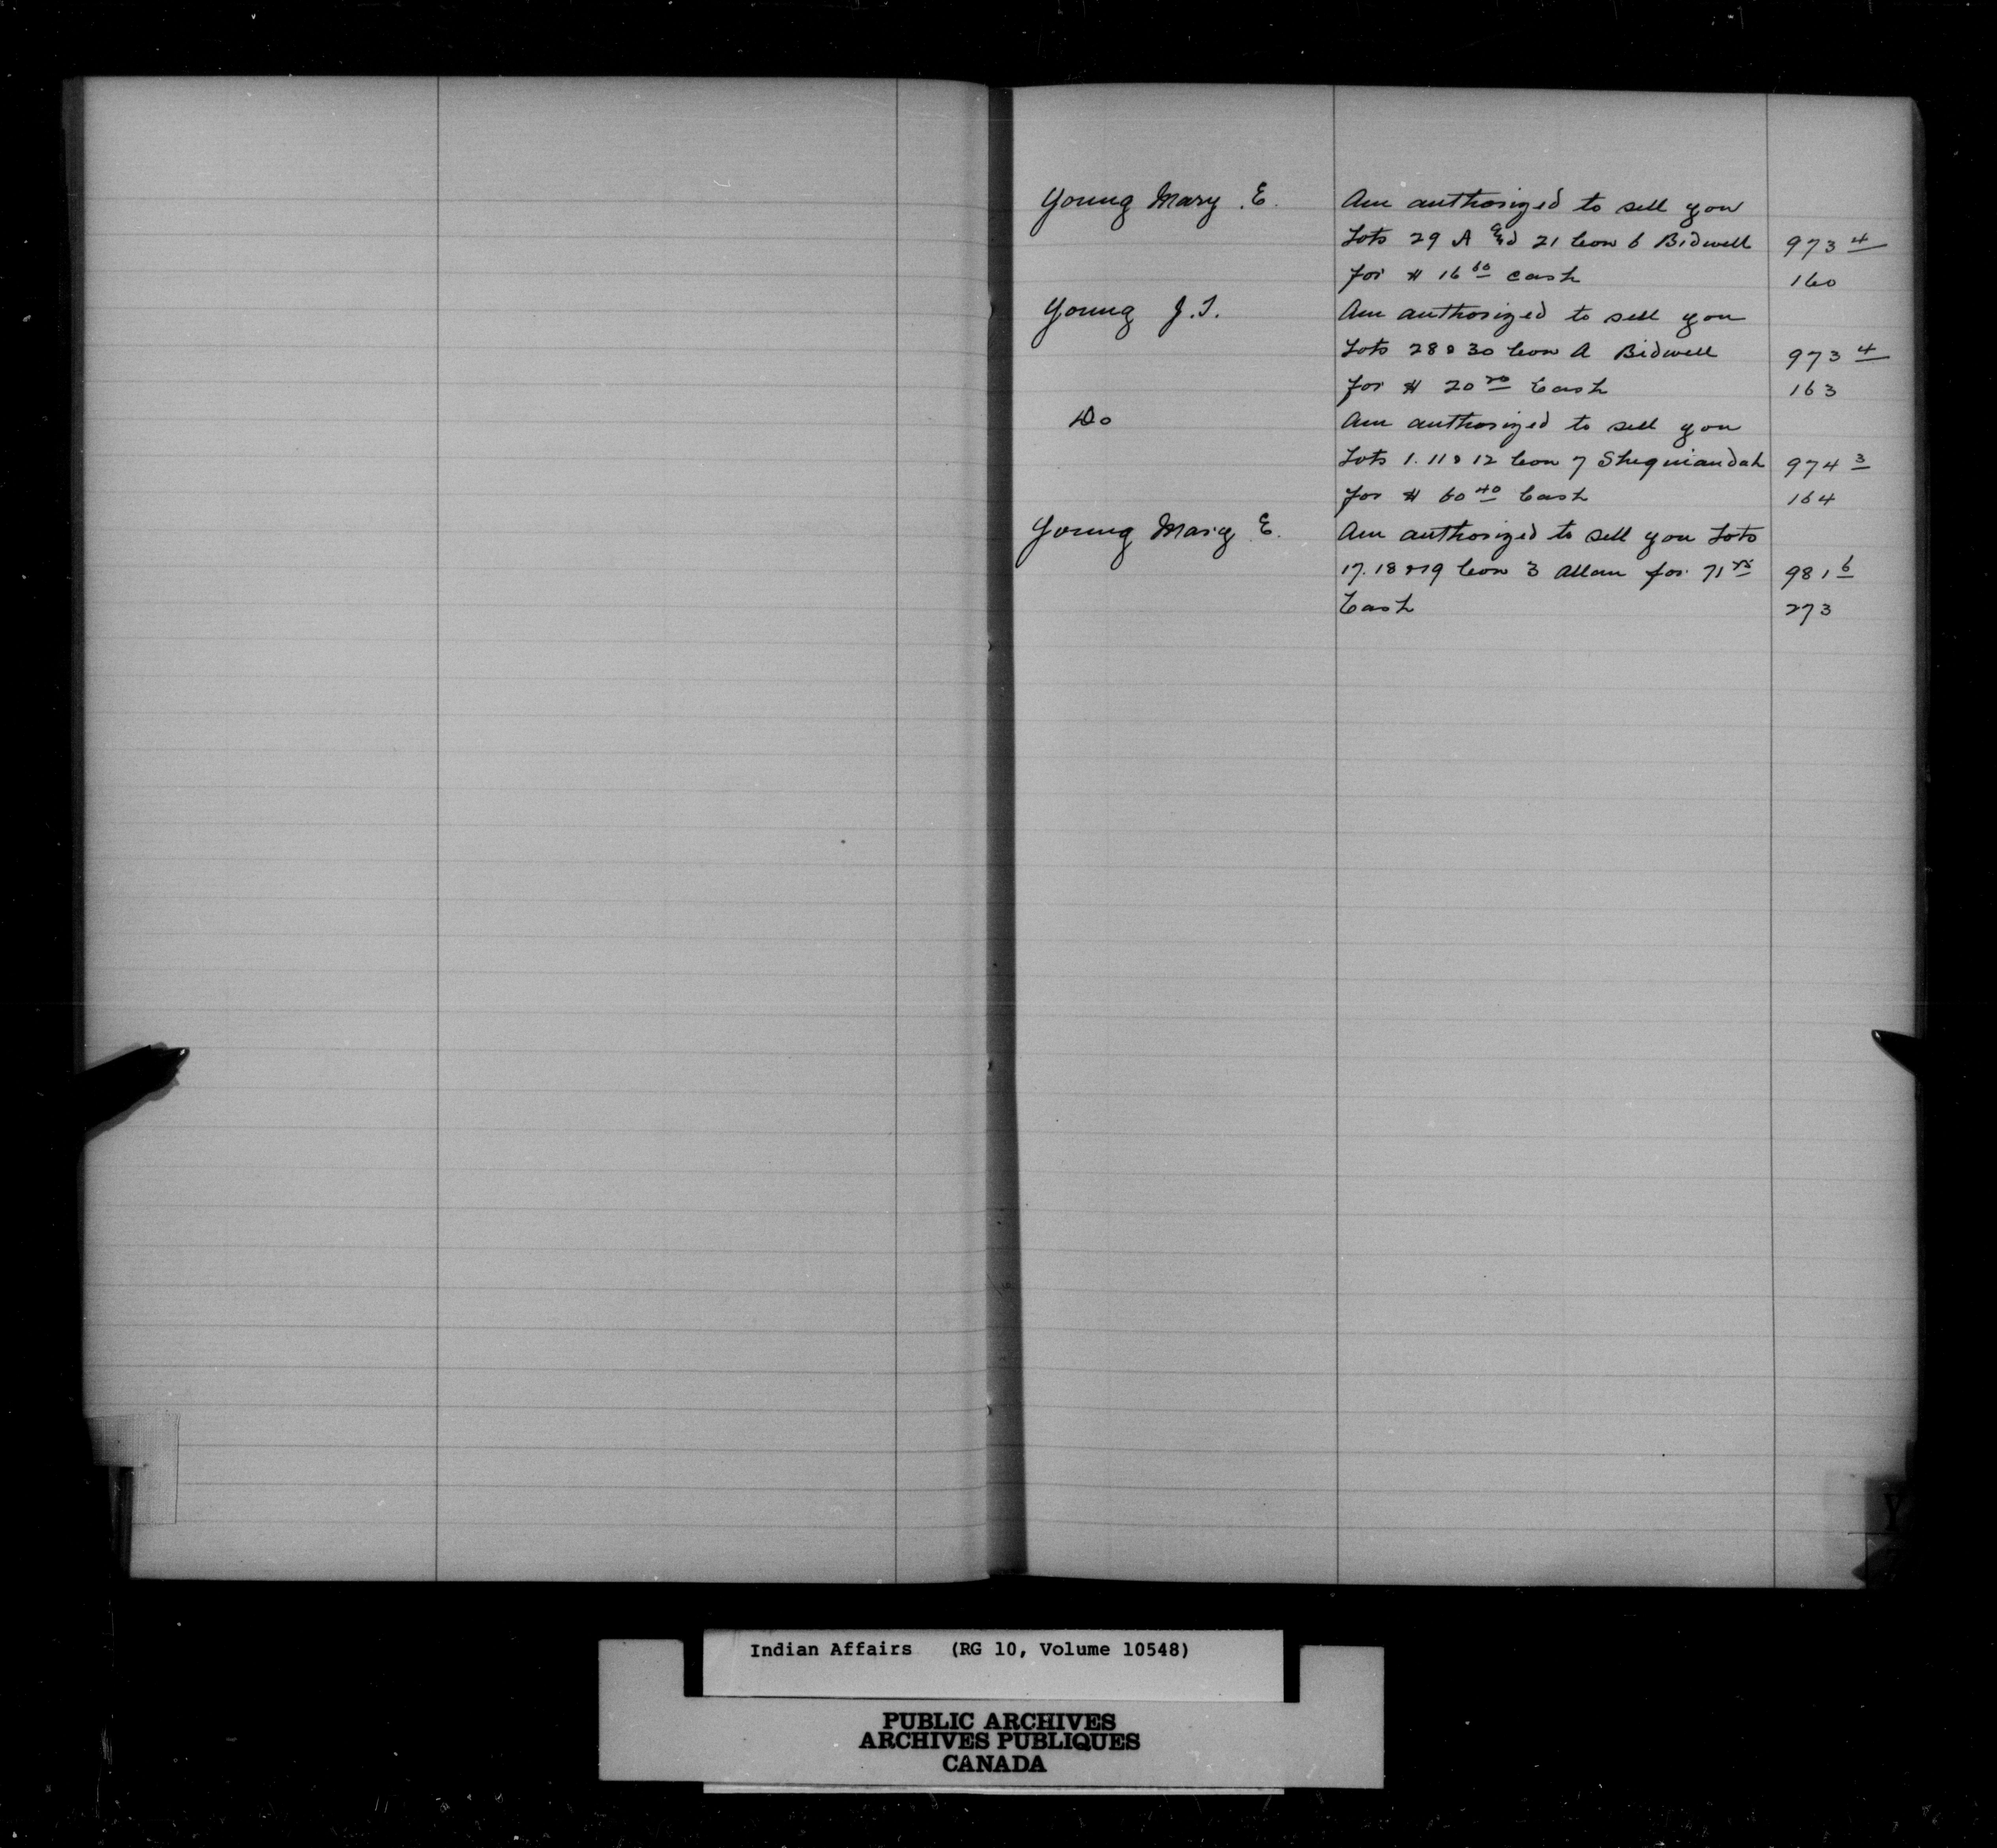 Young Mary E. Am authorized to sell you
Lots 29 A and 21 Con 6 Bidwell 973 4
for $ 16 60 cash 160
Young J.T. Am authorized to sell you
Lots 28 & 30 Con A Bidwell 973 4
for $ 20 20 Cash 163
Do Am authorized to sell you
Lots 1. 11 & 12 Con 7 Sheguiandah 974 3
for $ 60 40 Cash 164
Young Mary E. Am authorized to sell you Lots
17. 18 & 19 Con 3 Allan for 71 75 981 6
Cash 273
Y
Indian Affairs (RG 10, Volume 10548)
PUBLIC ARCHIVES
ARCHIVES PUBLIQUES
CANADA